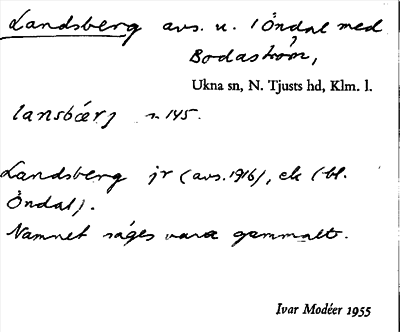 Landsberg avs. u. 1 Öndal med
Bodaström,
Ukna sn, N. Tjusts hd, Klm. l.
lansbærj n. 145.
Landsberg jr (avs. 1916), ek (bl.
Öndal).
Namnet säges vara gammalt.
Ivar Modéer 1955